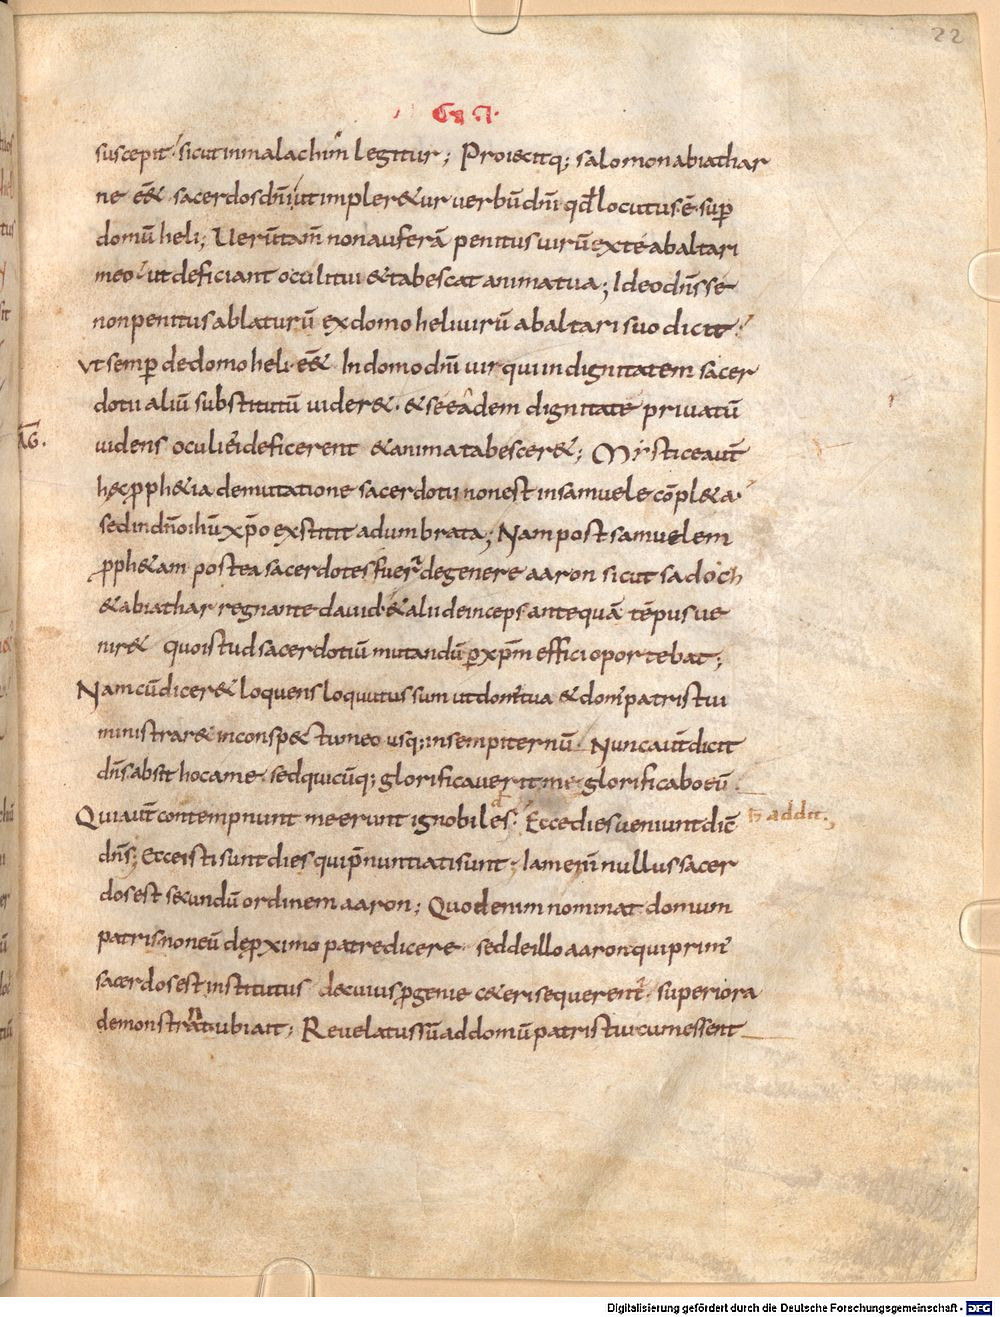 22
suscepit sicut in malachim legitur; Proiecitq; salomon abiathar
ne eēt sacerdos dn̄i ut impleretur uerbū dn̄i qđ locutus ē sup
domū heli; Uerūtam̄ non auferā penitus uirū ex te ab altari
meo ut deficiant oculi tui & tabescat anima tua; Ideo dn̄s se
non penitus ablaturū ex domo heli uirū ab altari suo dicit
ut semp de domo heli eēt In domo dn̄i uir qui in dignitatem sacer
dotii aliū substitutū uideret & se eādem dignitate priuatū
uidens oculi ei deficerent & anima tabesceret; Mystice aūt
hęc pphetia de mutatione sacerdotii non est in samuele cōpleta
sed in dn̄o ih̄u xp̄o exstitit adumbrata; Nam post samuelem
pphetam postea sacerdotes fuer̄ de genere aaron sicut sadoch
& abiathar regnante dauid & alii deinceps antequā tēpus ue
niret quo istud sacerdotiū mutandū p xp̄m effici oportebat;
Nam cū diceret loquens loquutus sum ut dom' tua & dom' patris tui
ministraret in conspectu meo usq; in sempiternū. Nunc aūt dicit
dn̄s absit hoc a me sed quicūq; glorificauerit me glorificabo eū.
Qui aūt contempnunt me erunt ignobiles. Ecce dies ueniunt dic̄
h addit.
dn̄s; Ecce isti sunt dies qui p̄nuntiati sunt. Iam enī nullus sacer
dos est secundū ordinem aaron; Quod enim nominat domum
patris non eū de pximo patre dicere sed de illo aaron qui prim'
sacerdos est institutus de cuius pgenie ceteri sequerent̄. superiora
demonstrant ubi ait; Reuelatus sū ad domū patris tui cum essent
Digitalisierung gefördert durch die Deutsche Forschungsgemeinschaft - DFG